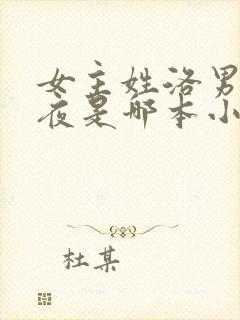 女主姓洛男
夜是哪本小
杜某